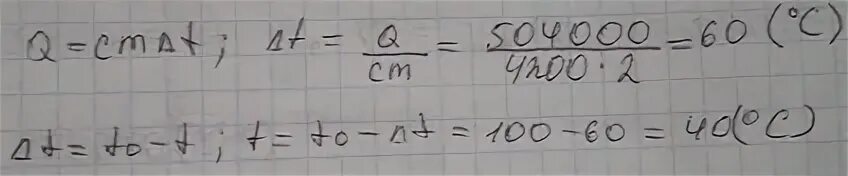 Q = cmΔt; Δt = Q/cm = 504000/4200·2 = 60 (°C)
Δt = to - t; t = to - Δt = 100 - 60 = 40(°C)